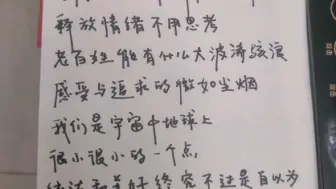 释放情绪不用思考
老百姓能有什么大波涛该演
感受与追求的微如尘烟
我们是宇宙中地球上
很小很小的一个点,
终究不过是自以为